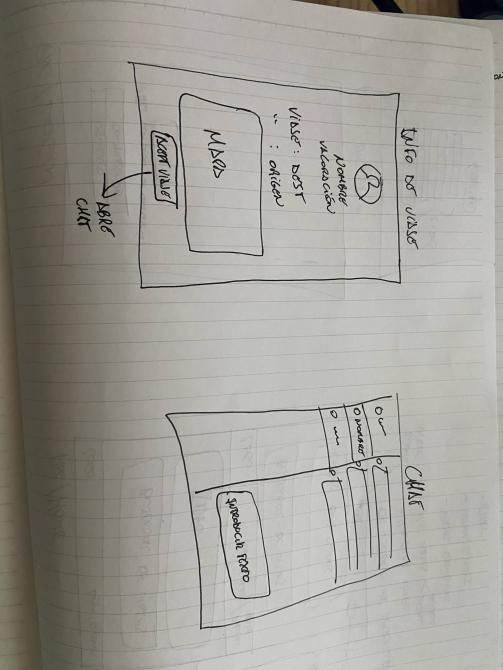 INFO DE VIAJE
NOMBRE
VALORACIÓN
VIAJE: DEST
" : ORIGEN
MAPA
ACEPT VIAJE
ABRE
CHAT
CHAT
NOMBRE
INTRODUCIR TEXTO